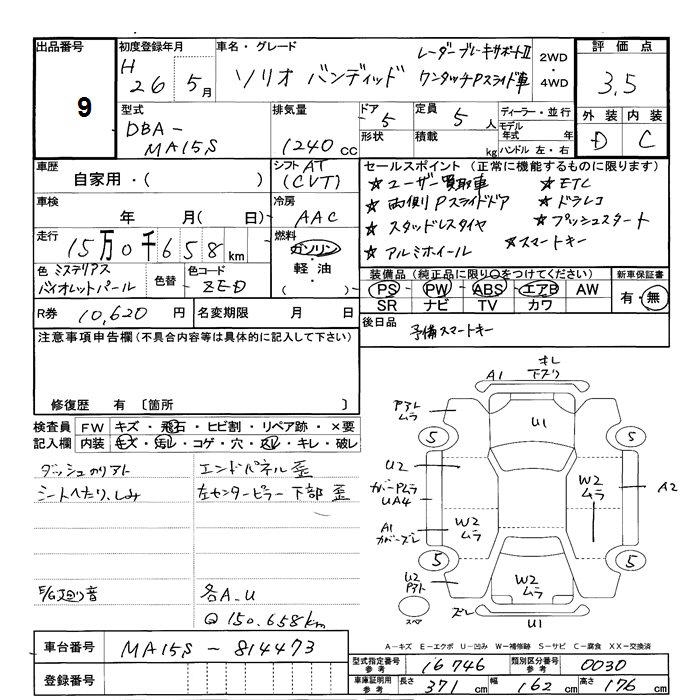 出品番号
9
初度登録年月
H 26 5月
車名・グレード
レーダーブレーキサポートⅡ
ソリオ バンディッド ワンタッチPスライド車
2WD
・
4WD
評価点
3.5
外装 内装
D C
型式
DBA-
MA15S
排気量
1240 cc
ドア
5
形状
定員 5 人
積載 kg
ディーラー・並行
モデル年式 年
ハンドル 左・右
車歴
自家用・( )
シフト AT
(CVT)
車検
年 月( 日)
冷房
AAC
走行
15万0千658 km
燃料
ガソリン
・
軽油
・
( )
色 ミステリアス
バイオレットパール
色替
色コード
ZED
R券 10,620 円
名変期限 月 日
セールスポイント(正常に機能するものに限ります)
☆ユーザー買取車 ☆ETC
☆両側Pスライドドア ☆ドラレコ
☆スタッドレスタイヤ ☆プッシュスタート
☆アルミホイール ☆スマートキー
装備品(純正品に限り○をつけてください)
PS・PW・ABS・エアB・AW
SR ナビ TV カワ
新車保証書
有・無
後日品
予備スマートキー
注意事項申告欄(不具合内容等は具体的に記入して下さい)
修復歴 有 〔箇所 〕
検査員記入欄
FW キズ・飛石・ヒビ割・リペア跡・×要
内装 キズ・汚レ・コゲ・穴・スレ・キレ・破レ
ダッシュカリアト
シートへたり、しみ
エンドパネル歪
左センターピラー下部歪
E/G廻り音
各A.U
@150.658km
車台番号 MA15S-814473
登録番号
A1
オレ
下スリ
アトレ
ムラ
U1
5
5
U2
ガバーPムラ
UA4
W2
ムラ
A2
A1
カバーズレ
W2
ムラ
5
5
U2
Pアト
W2
ムラ
スペア
ズレ
U1
A-キズ E-エクボ U-凹み W-補修跡 S-サビ C-腐食 XX-交換済
型式指定番号 参考 16746
類別区分番号 参考 0030
車庫証明用 参考
長さ 371 cm 幅 162 cm 高さ 176 cm